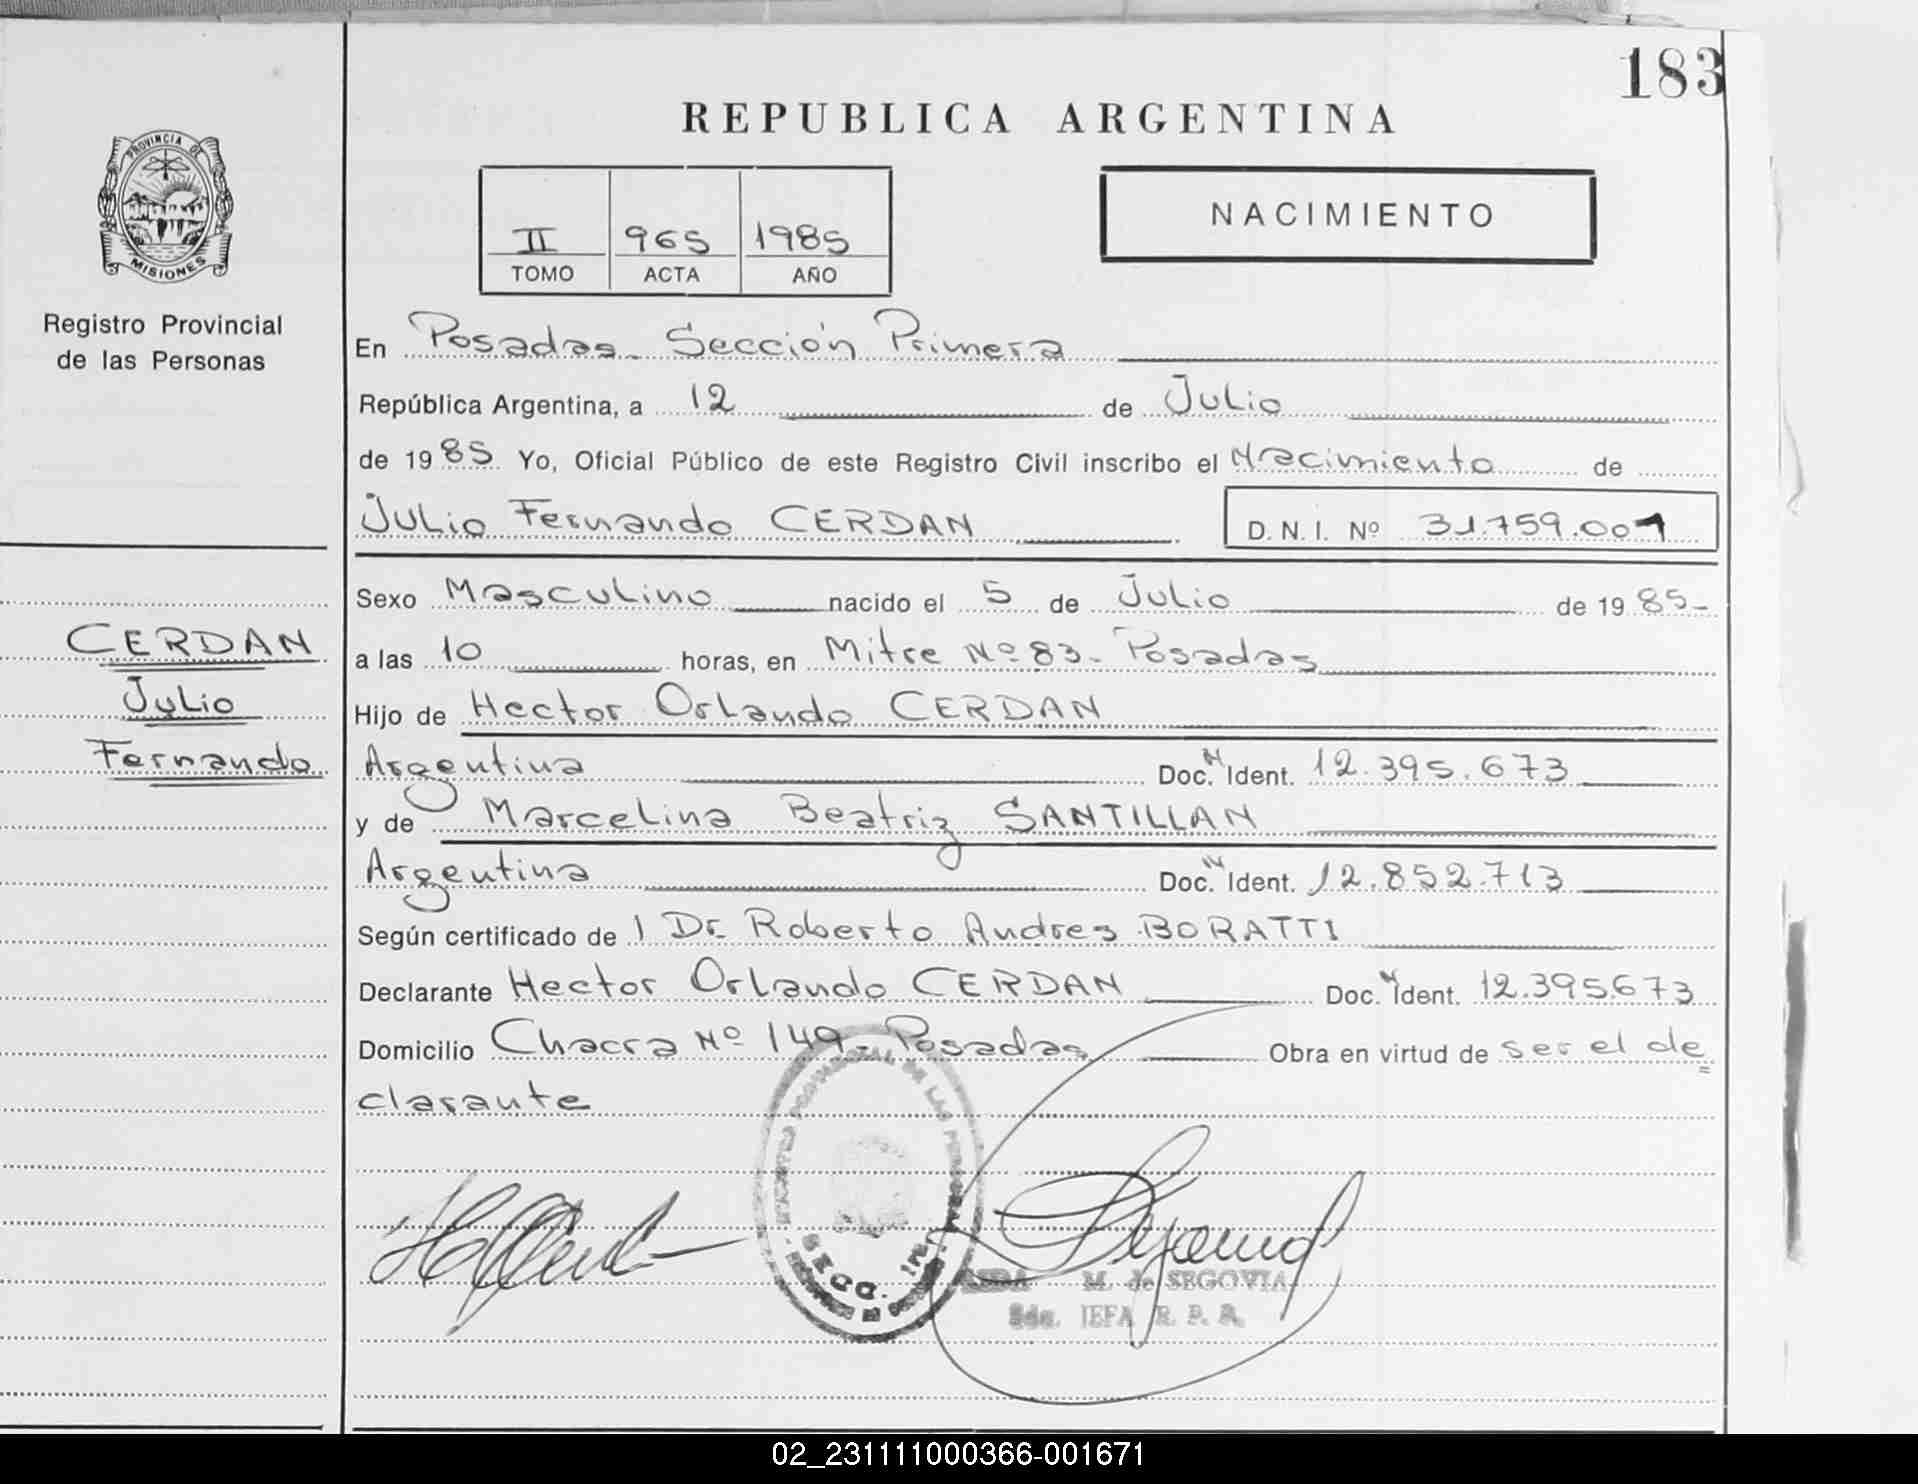 183
REPUBLICA ARGENTINA
PROVINCIA DE
MISIONES
Registro Provincial
de las Personas
II 965 1985
TOMO ACTA AÑO
NACIMIENTO
En Posadas. Sección Primera
República Argentina, a 12 de Julio
de 1985 Yo, Oficial Público de este Registro Civil inscribo el Nacimiento de
Julio Fernando CERDAN D. N. I. Nº 31.759.001
Sexo Masculino nacido el 5 de Julio de 1985-
a las 10 horas, en Mitre Nº 83- Posadas
Hijo de Hector Orlando CERDAN
Argentina Doc. N Ident. 12.395.673
y de Marcelina Beatriz SANTILLAN
Argentina Doc. N Ident. 12.852.713
Según certificado de 1 Dr Roberto Andres BORATTI
Declarante Hector Orlando CERDAN Doc. N Ident. 12.395673
Domicilio Chacra Nº 149- Posadas Obra en virtud de ser el de=
clarante
CERDAN
Julio
Fernando
DE LAS
SECC. 1RA
M. de SEGOVIA
JEFA R. P.
02_231111000366-001671